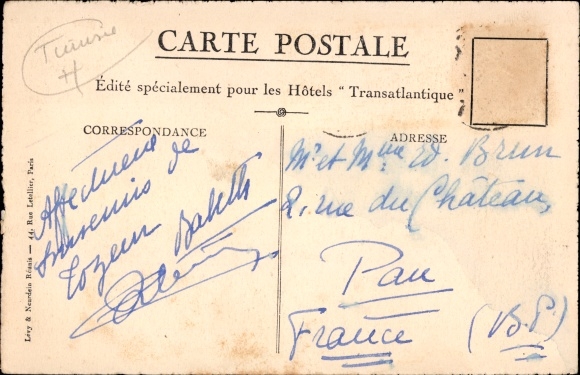 Tunisie
CARTE POSTALE
Édité spécialement pour les Hôtels " Transatlantique "
CORRESPONDANCE
ADRESSE
Affectueux
souvenirs de
Tozeur
Babeth
Mr et Mme Ed. Brun
2, rue du Château,
Pau
France (B.P)
Lévy & Neurdein Réunis — 44, Rue Letellier, Paris